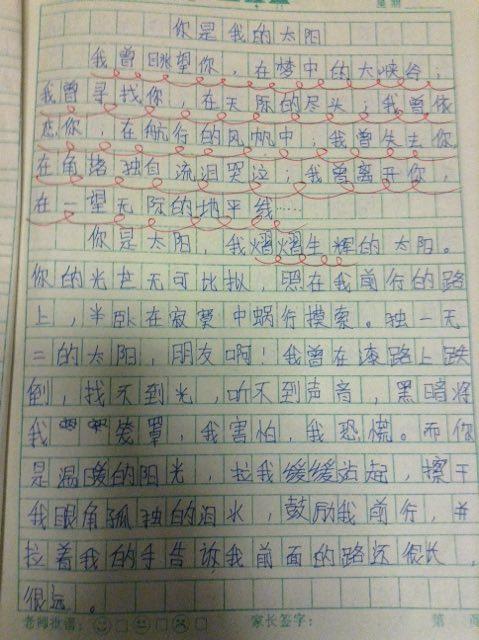 你是我的太阳
我曾眺望你，在梦中的大峡谷；
我曾寻找你，在天际的尽头；我曾依
恋你，在航行的风帆中；我曾失去你
在角落独自流泪哭泣；我曾离开你，
在一望无际的地平线……
你是太阳，我熠熠生辉的太阳。
你的光芒无可比拟，照在我前行的路
上，半卧在寂寞中蜗行摸索。独一无
二的太阳，朋友啊！我曾在漆路上跌
倒，找不到光，听不到声音，黑暗将
我笼罩，我害怕，我恐慌。而你
是温暖的阳光，拉我缓缓站起，擦干
我眼角孤独的泪水，鼓励我前行，并
拉着我的手告诉我前面的路还很长，
很远。
老师批语： 家长签字： 第 页